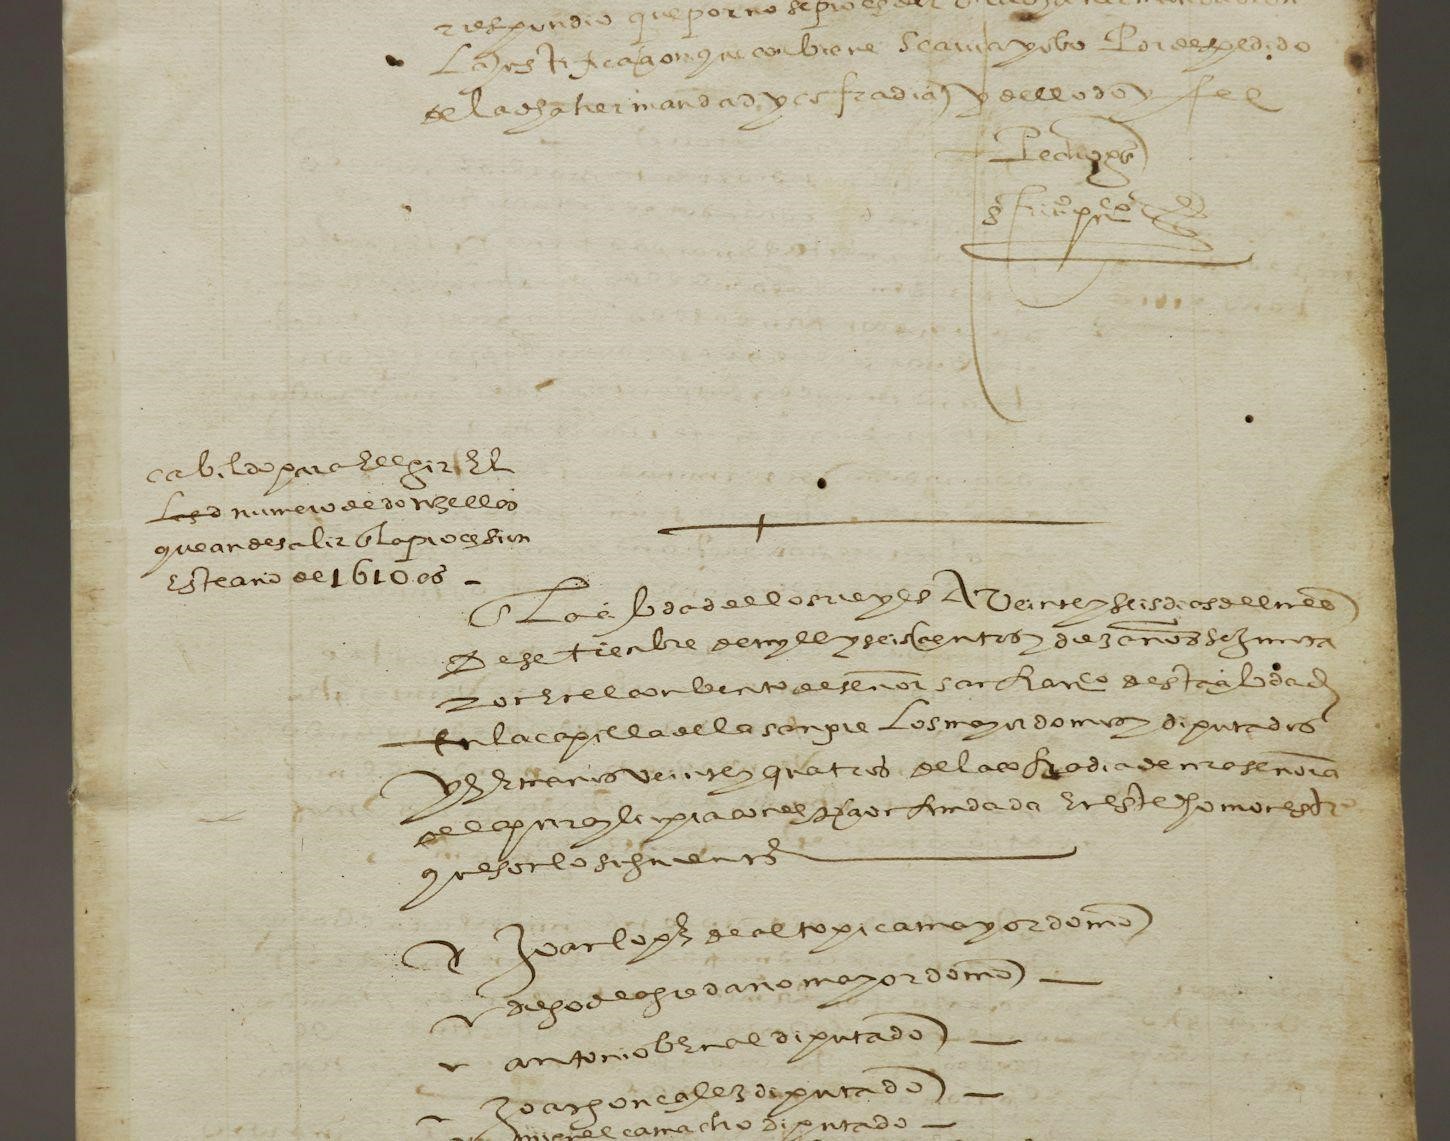 respondio que por no se pio
La justificaçion que conbiene Por despedido
de la dha hermandad y cofradia y dello doy fee
Pedro
Cabildo para Elegir El
Los d numero de donzellas
que an de salir En la procession
Este año de 1610 as
En La cibdad de los rreyes A Veinte y seis dias del mes
De setienbre de myll y seiscientos y diez años se junta
ron En el conbento de señor san franco desta çibdad
En la capilla de la sangre Los mayordomos y diputados
y Ermanos veinte y quatros de la cofradia de nra señora
de la pura y linpia conçepçion fundada En este dho monestrio
que son los siguientes
Joan lopz de altopica mayordomo
diego de agredano mayordomo
antonio bernal diputado
Joan gonçalez diputado
miguel camacho diputado